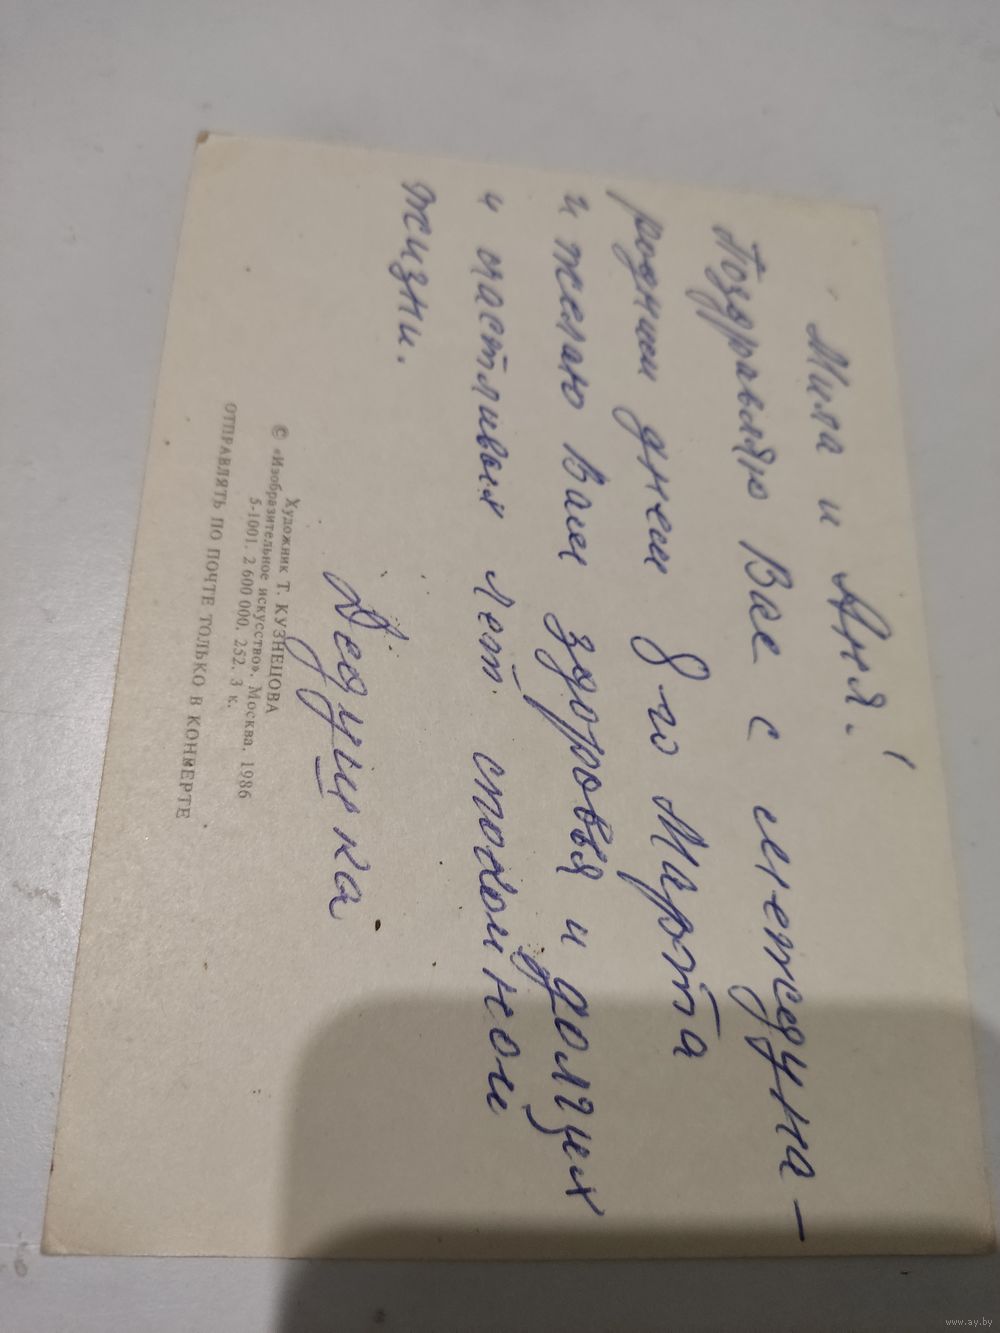 Мила и Аня!
Поздравляю Вас с междуна-
родним днем 8-го Марта
и желаю Вам здоровья и долгих
и счастливых лет спокойной
жизни.
Дедушка
Художник Т. КУЗНЕЦОВА
© «Изобразительное искусство». Москва. 1986
5-1001. 2 600 000. 252. 3 к.
ОТПРАВЛЯТЬ ПО ПОЧТЕ ТОЛЬКО В КОНВЕРТЕ
www.ay.by